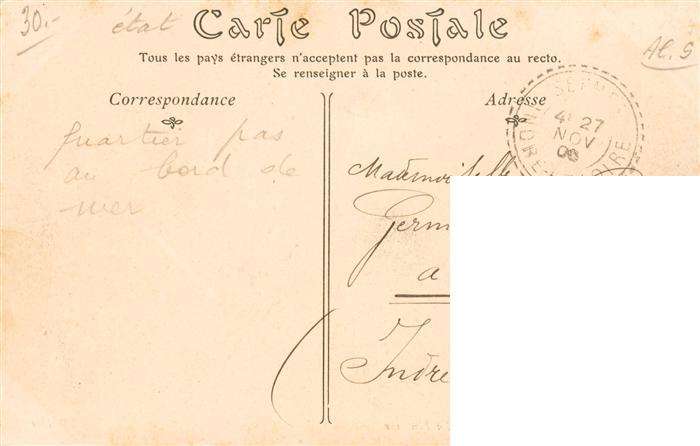 30.-
état
Al. S
Carte Postale
Tous les pays étrangers n'acceptent pas la correspondance au recto.
Se renseigner à la poste.
Correspondance
Adresse
quartier pas
au bord de
mer
4 27
NOV
RE
OIRE
Mademoiselle
Germ
a
Indre